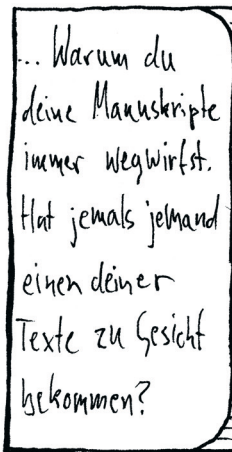 ... Warum du
deine Manuskripte
immer wegwirfst.
Hat jemals jemand
einen deiner
Texte zu Gesicht
bekommen?